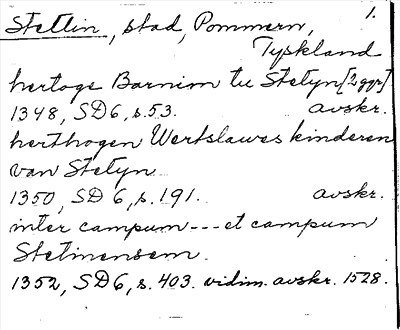 1.
Stettin, stad, Pommern,
Tyskland
hertoge Barnim tu Stetyn [2 ggr]
1348, SD6, s. 53. avskr.
herthogen Wertslawes kinderen
van Stetyn
1350, SD 6, s. 191. avskr.
inter campum --- et campum
Stetinensem.
1352, SD6, s. 403. vidim. avskr. 1528.